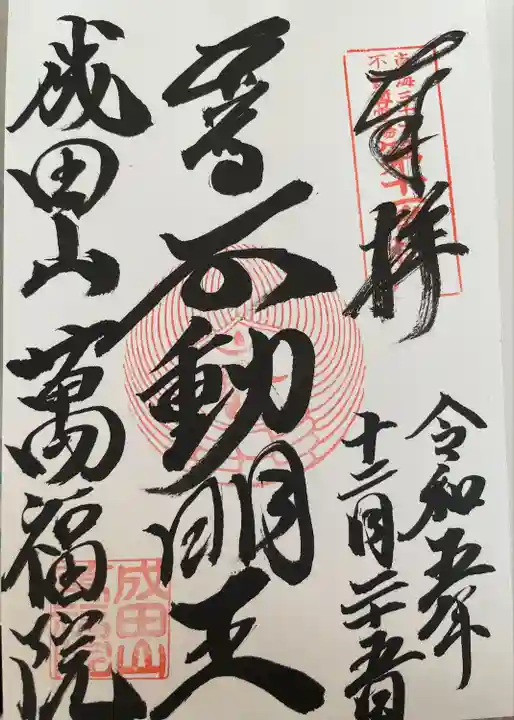 奉拝
令和五年
十二月二十五日
尊不動明王
成田山萬福院
成田山
萬福院